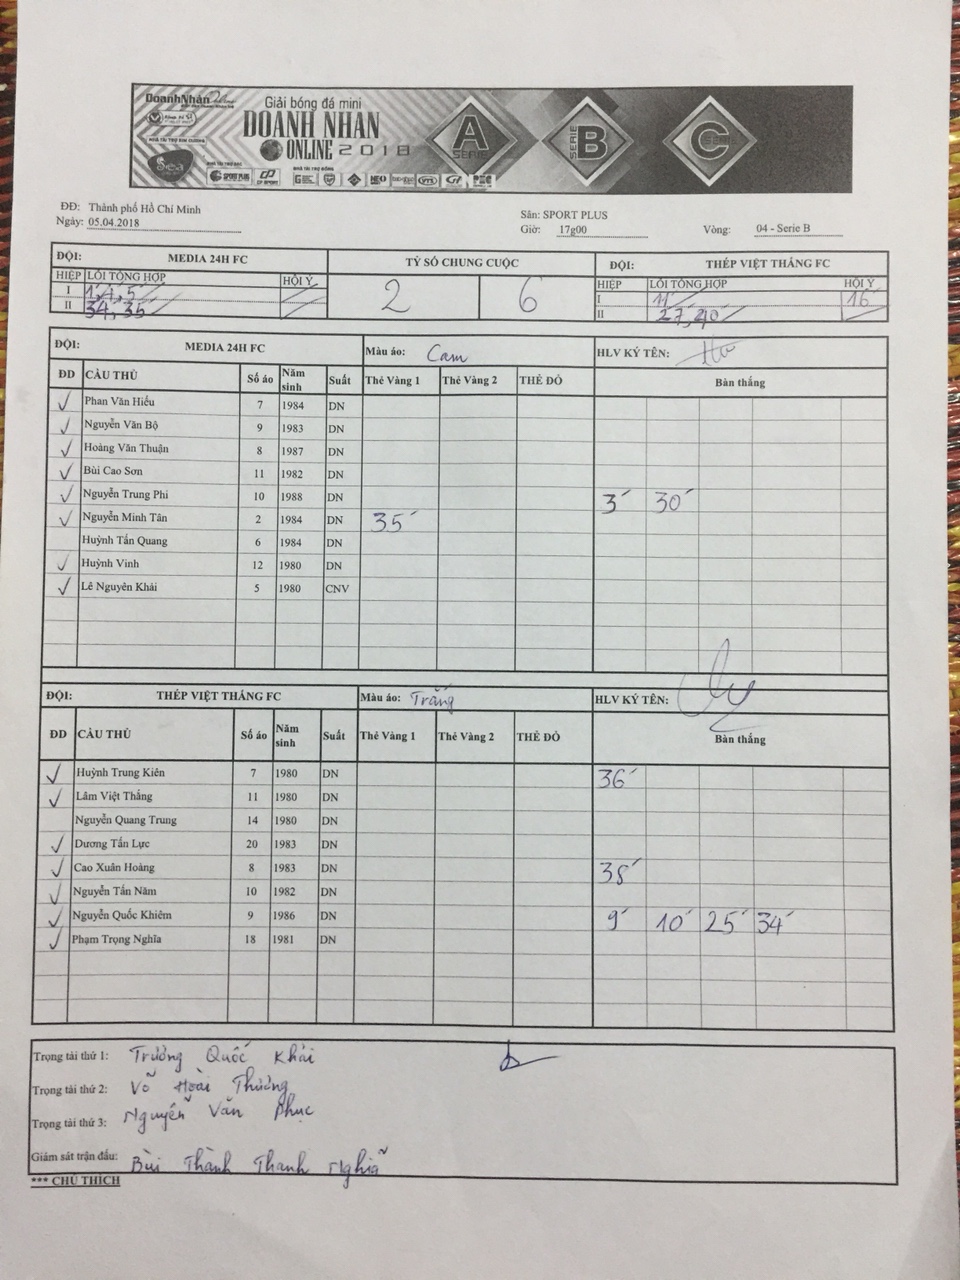 DoanhNhân Online
Giải bóng đá mini
DOANH NHÂN
ONLINE 2018
NHÀ TÀI TRỢ KIM CƯƠNG
Sea
NHÀ TÀI TRỢ BẠC
NHÀ TÀI TRỢ ĐỒNG
SPORT PLUS
CP SPORT
NEO
A
SERIE
SERIE
B
C
ĐĐ: Thành phố Hồ Chí Minh
Ngày: 05.04.2018
Sân: SPORT PLUS
Giờ: 17g00 Vòng: 04 - Serie B
ĐỘI: MEDIA 24H FC TỶ SỐ CHUNG CUỘC ĐỘI: THÉP VIỆT THẮNG FC
HIỆP LỖI TỔNG HỢP HỘI Ý 2 6 HIỆP LỖI TỔNG HỢP HỘI Ý
I 1', 4', 5' I 11' 16'
II 34', 35' II 27', 40'
ĐỘI: MEDIA 24H FC Màu áo: Cam HLV KÝ TÊN:
ĐD CẦU THỦ Số áo Năm sinh Suất Thẻ Vàng 1 Thẻ Vàng 2 THẺ ĐỎ Bàn thắng
✓ Phan Văn Hiếu 7 1984 DN
✓ Nguyễn Văn Bộ 9 1983 DN
✓ Hoàng Văn Thuận 8 1987 DN
✓ Bùi Cao Sơn 11 1982 DN
✓ Nguyễn Trung Phi 10 1988 DN 3' 30'
✓ Nguyễn Minh Tân 2 1984 DN 35'
Huỳnh Tấn Quang 6 1984 DN
✓ Huỳnh Vinh 12 1980 DN
✓ Lê Nguyên Khải 5 1980 CNV
ĐỘI: THÉP VIỆT THẮNG FC Màu áo: Trắng HLV KÝ TÊN:
ĐD CẦU THỦ Số áo Năm sinh Suất Thẻ Vàng 1 Thẻ Vàng 2 THẺ ĐỎ Bàn thắng
✓ Huỳnh Trung Kiên 7 1980 DN 36'
✓ Lâm Việt Thắng 11 1980 DN
Nguyễn Quang Trung 14 1980 DN
✓ Dương Tấn Lực 20 1983 DN
✓ Cao Xuân Hoàng 8 1983 DN 38'
✓ Nguyễn Tấn Năm 10 1982 DN
✓ Nguyễn Quốc Khiêm 9 1986 DN 9' 10' 25' 34'
✓ Phạm Trọng Nghĩa 18 1981 DN
Trọng tài thứ 1: Trương Quốc Khải
Trọng tài thứ 2: Võ Hoài Thương
Trọng tài thứ 3: Nguyễn Văn Phục
Giám sát trận đấu: Bùi Thành Thanh Nghĩa
*** CHÚ THÍCH